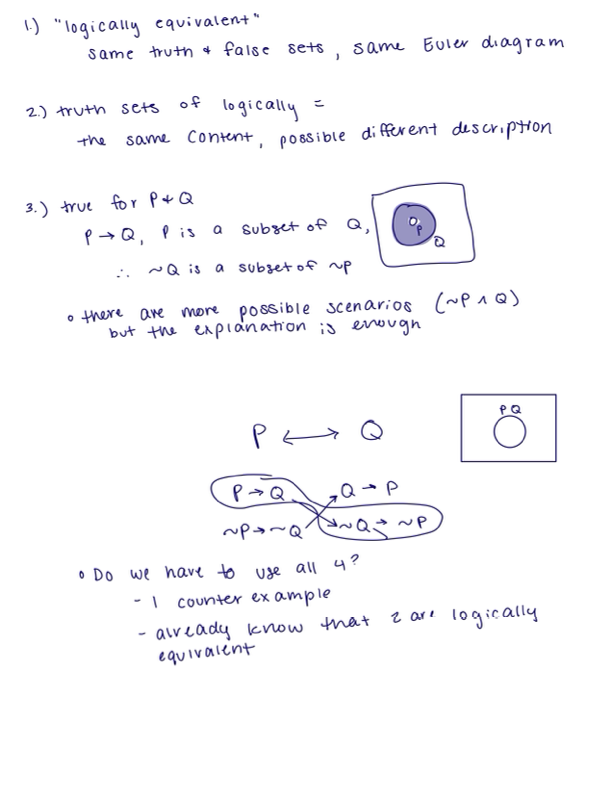 1.) "logically equivalent"
same truth & false sets, same Euler diagram
2.) truth sets of logically =
the same content, possible different description
3.) true for P & Q
P → Q, P is a subset of Q,
P
Q
∴ ~Q is a subset of ~P
• there are more possible scenarios (~P ∧ Q)
but the explanation is enough
P Q
P ↔ Q
P → Q Q → P
~P → ~Q ~Q → ~P
• Do we have to use all 4?
- 1 counter example
- already know that 2 are logically
equivalent